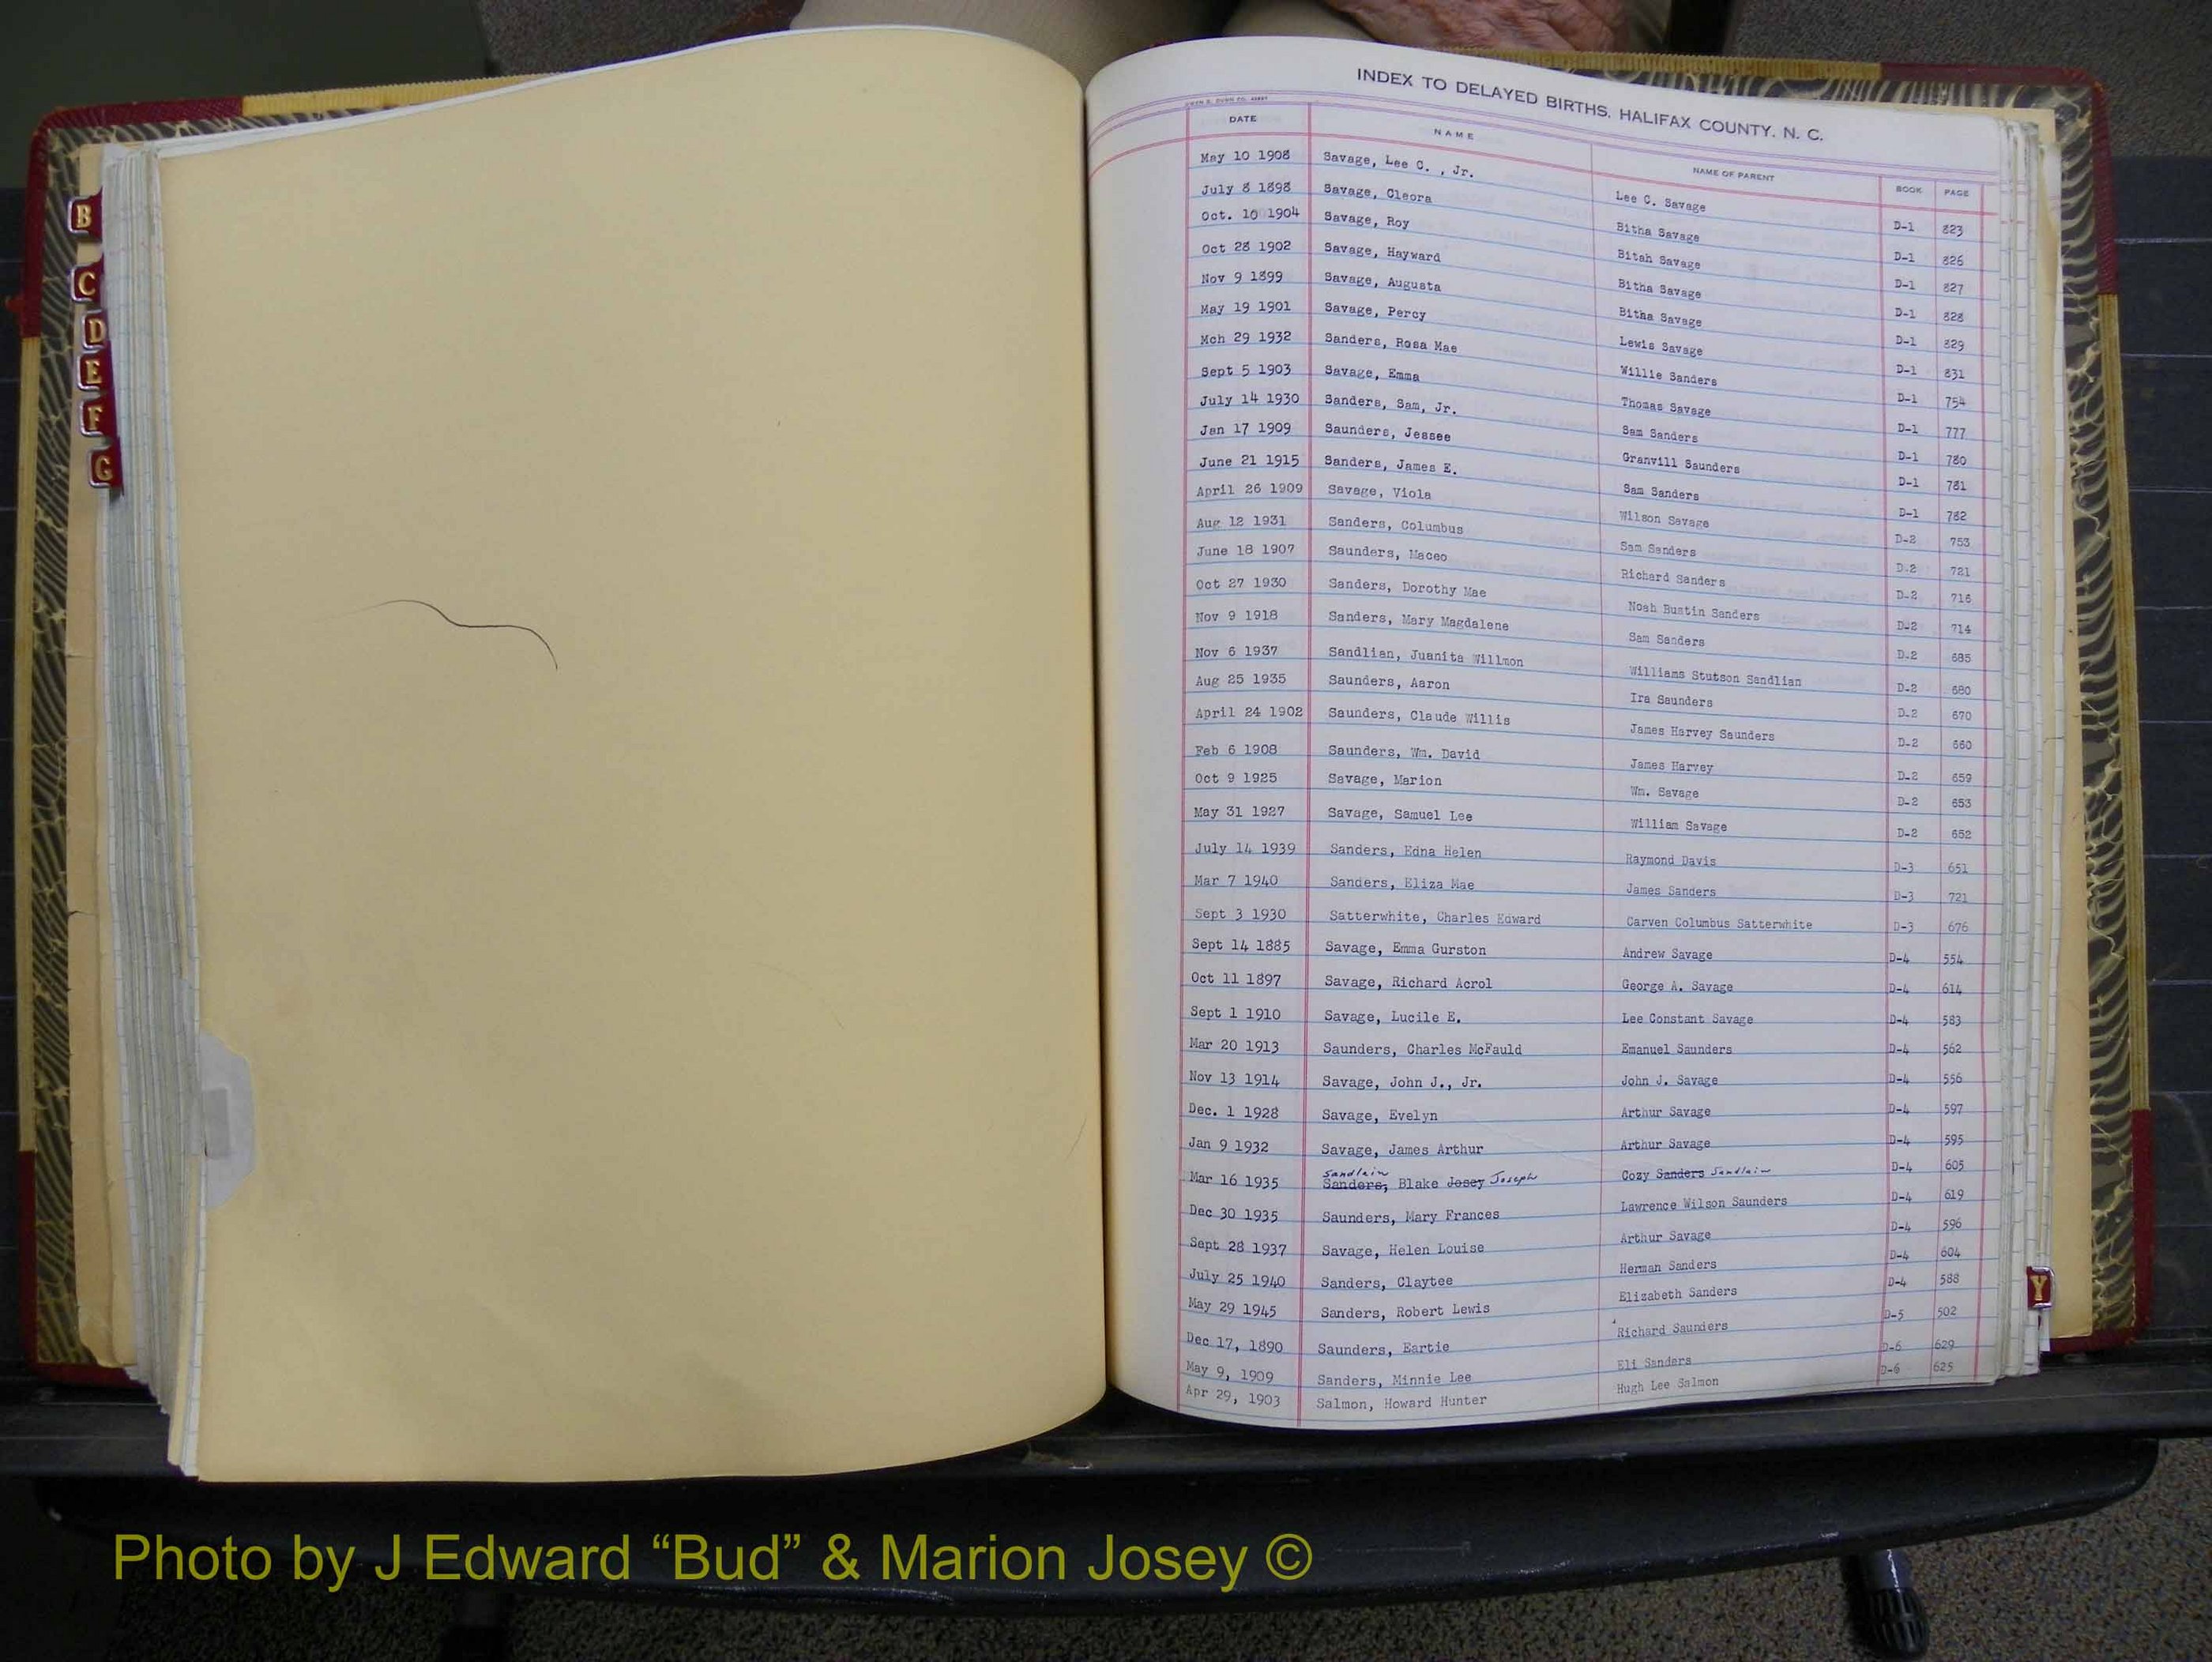 INDEX TO DELAYED BIRTHS, HALIFAX COUNTY, N. C.
DATE NAME NAME OF PARENT BOOK PAGE
May 10 1908 Savage, Lee C. , Jr. Lee C. Savage D-1 823
July 8 1898 Savage, Cleora Bitha Savage D-1 826
Oct. 10 1904 Savage, Roy Bitah Savage D-1 827
Oct 28 1902 Savage, Hayward Bitha Savage D-1 828
Nov 9 1899 Savage, Augusta Bitha Savage D-1 829
May 19 1901 Savage, Percy Lewis Savage D-1 831
Mch 29 1932 Sanders, Rosa Mae Willie Sanders D-1 754
Sept 5 1903 Savage, Emma Thomas Savage D-1 777
July 14 1930 Sanders, Sam, Jr. Sam Sanders D-1 780
Jan 17 1909 Saunders, Jessee Granvill Saunders D-1 781
June 21 1915 Sanders, James E. Sam Sanders D-1 782
April 26 1909 Savage, Viola Wilson Savage D-2 753
Aug 12 1931 Sanders, Columbus Sam Sanders D.2 721
June 18 1907 Saunders, Maceo Richard Sanders D-2 716
Oct 27 1930 Sanders, Dorothy Mae Noah Bustin Sanders D-2 714
Nov 9 1918 Sanders, Mary Magdalene Sam Sanders D.2 685
Nov 6 1937 Sandlian, Juanita Willmon Williams Stutson Sandlian D-2 680
Aug 25 1935 Saunders, Aaron Ira Saunders D.2 670
April 24 1902 Saunders, Claude Willis James Harvey Saunders D-2 660
Feb 6 1908 Saunders, Wm. David James Harvey D-2 659
Oct 9 1925 Savage, Marion Wm. Savage D-2 653
May 31 1927 Savage, Samuel Lee William Savage D-2 652
July 14 1939 Sanders, Edna Helen Raymond Davis D-3 651
Mar 7 1940 Sanders, Eliza Mae James Sanders D-3 721
Sept 3 1930 Satterwhite, Charles Edward Carven Columbus Satterwhite D-3 676
Sept 14 1885 Savage, Emma Gurston Andrew Savage D-4 554
Oct 11 1897 Savage, Richard Acrol George A. Savage D-4 614
Sept 1 1910 Savage, Lucile E. Lee Constant Savage D-4 583
Mar 20 1913 Saunders, Charles McFauld Emanuel Saunders D-4 562
Nov 13 1914 Savage, John J., Jr. John J. Savage D-4 556
Dec. 1 1928 Savage, Evelyn Arthur Savage D-4 597
Jan 9 1932 Savage, James Arthur Arthur Savage D-4 595
Sandlain
Mar 16 1935 Sanders, Blake Josey Joseph Cozy Sanders Sandlain D-4 605
Dec 30 1935 Saunders, Mary Frances Lawrence Wilson Saunders D-4 619
Sept 28 1937 Savage, Helen Louise Arthur Savage D-4 596
July 25 1940 Sanders, Claytee Herman Sanders D-4 604
May 29 1945 Sanders, Robert Lewis Elizabeth Sanders D-4 588
Dec 17, 1890 Saunders, Eartie Richard Saunders D-5 502
May 9, 1909 Sanders, Minnie Lee Eli Sanders D-6 629
Apr 29, 1903 Salmon, Howard Hunter Hugh Lee Salmon D-6 625
B
C
D
E
F
G
Y
Photo by J Edward “Bud” & Marion Josey ©